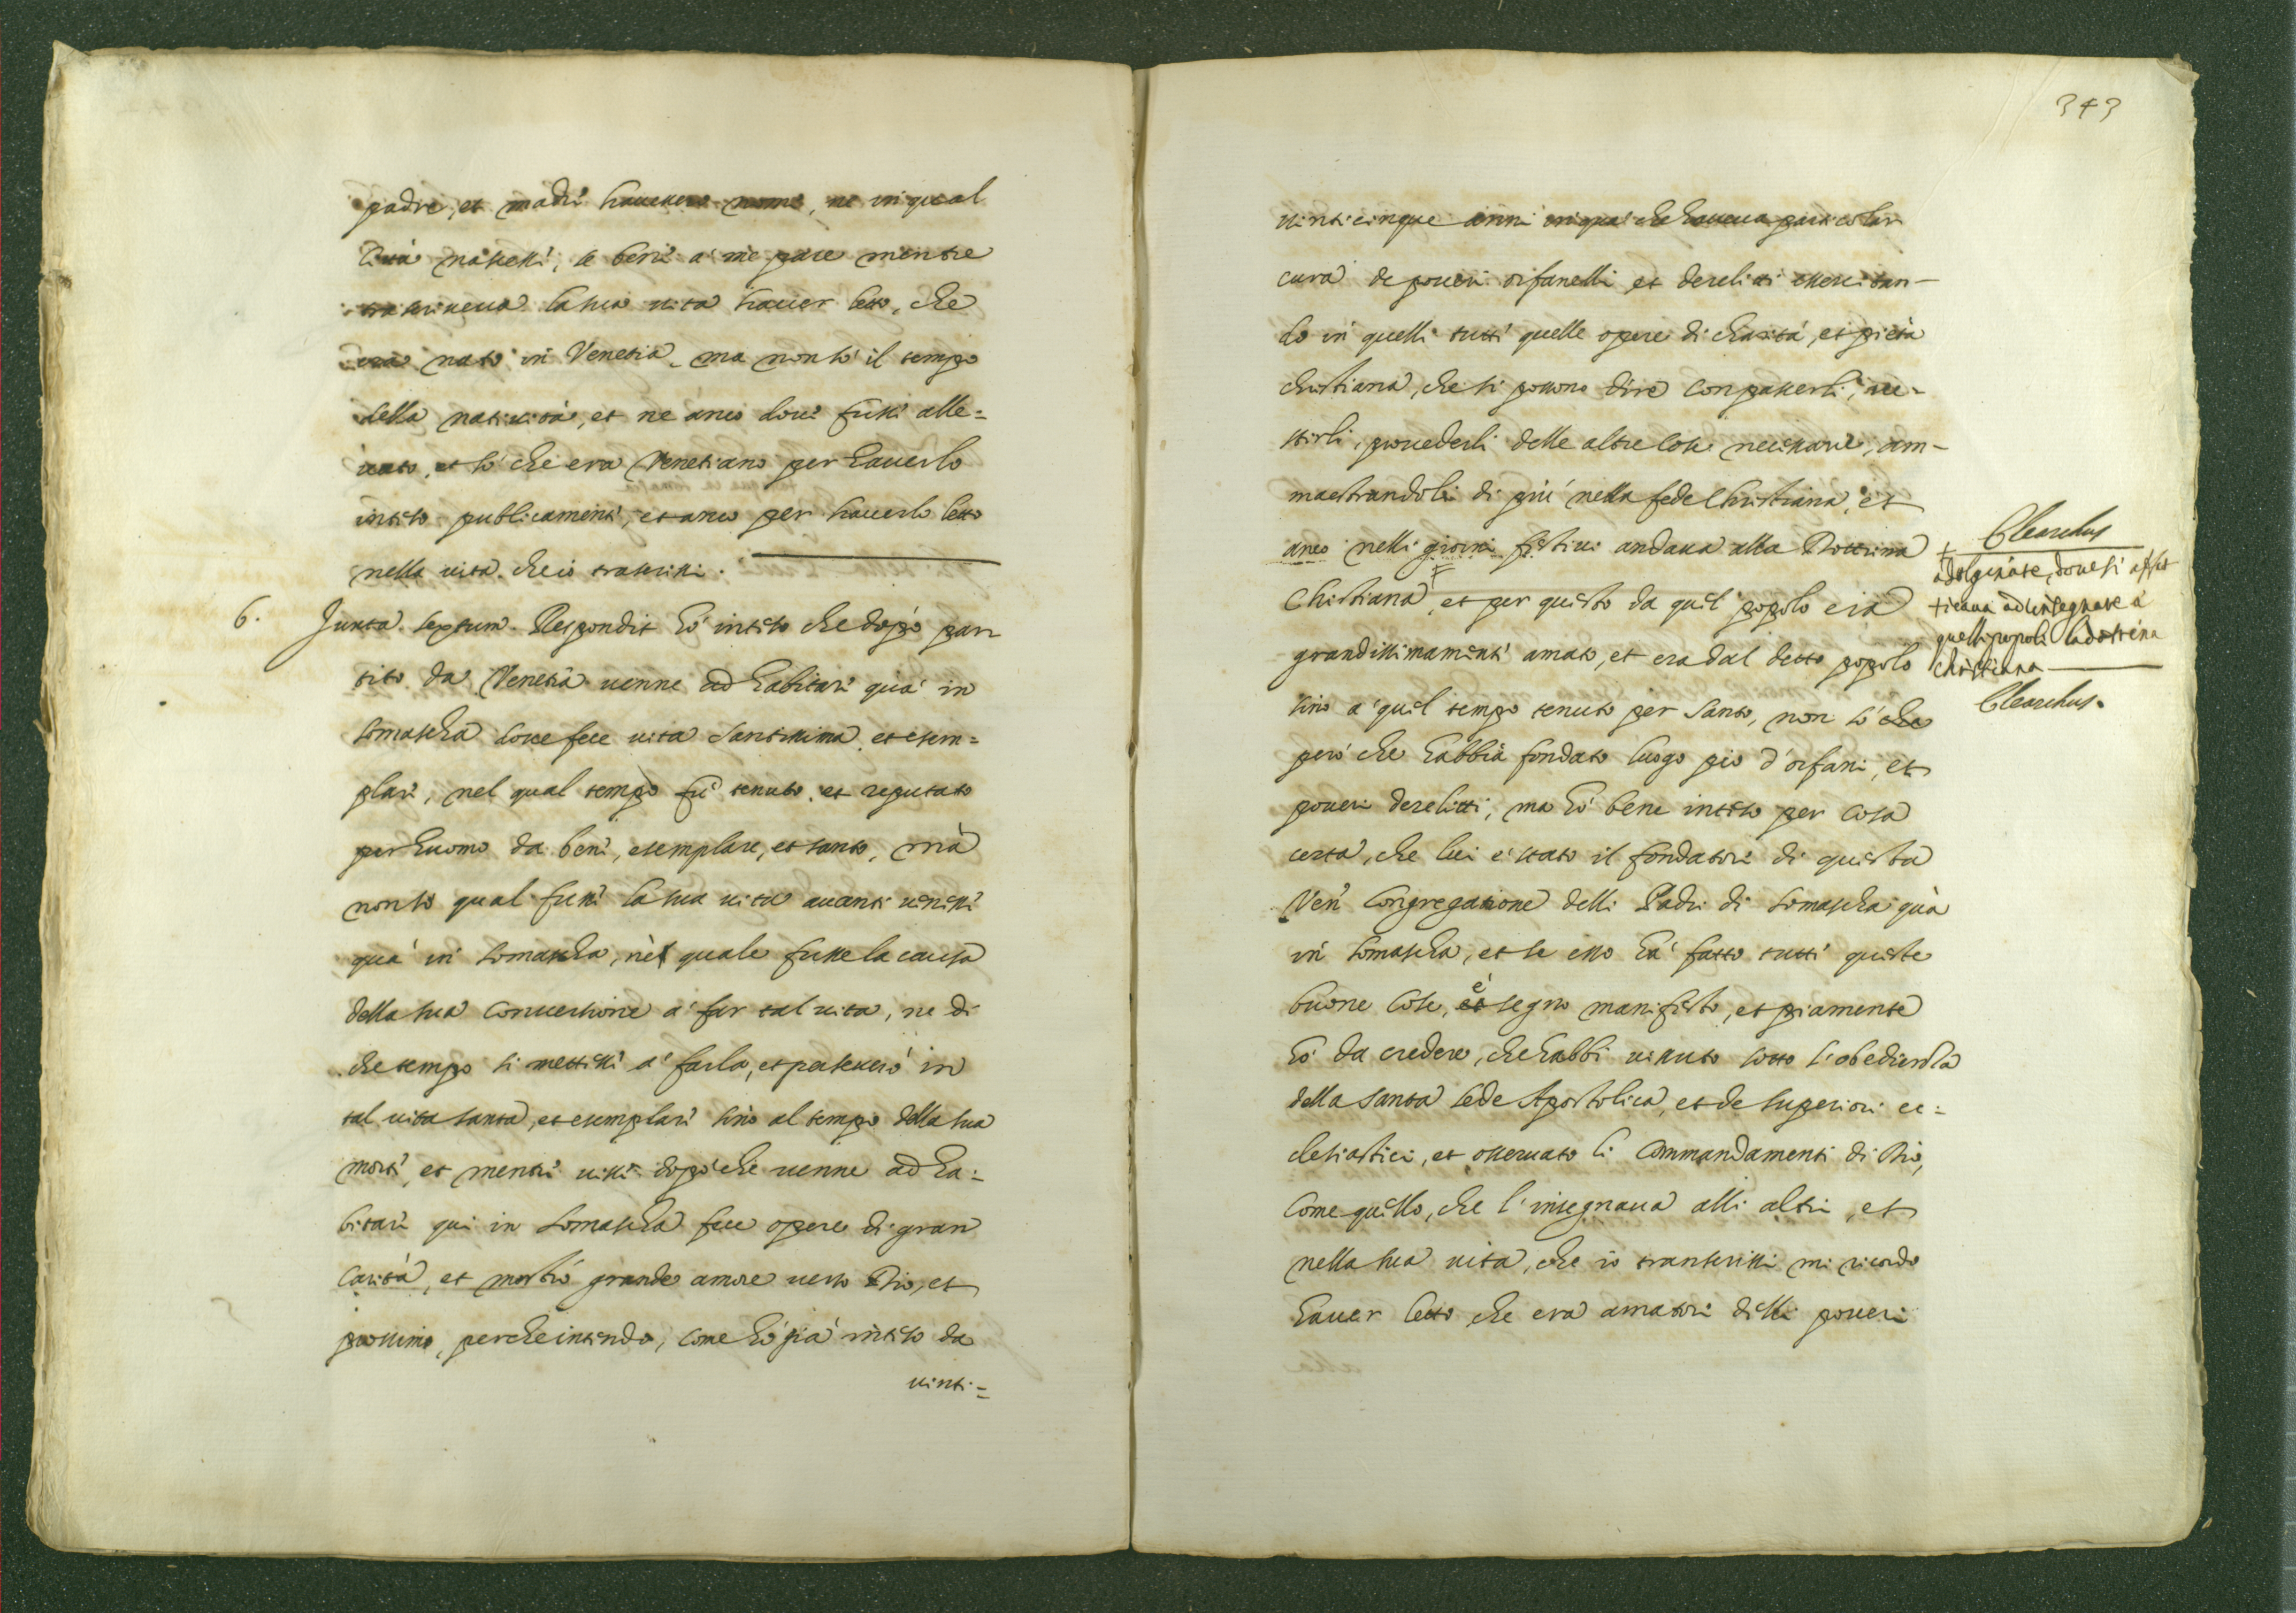 padre, et madri havessero nome, ne in qual
Città nascessi, se bene a me pare mentre
trascriveva la sua vita haver letto, che
era nato in Venetia, ma non sò il tempo
della natività, et ne anco dove fussi alle=
vato, et sò che era Venetiano per haverlo
inteso publicamente, et anco per haverlo letto
nella vita che io trascrissi.
6. Juxta sextum. Respondit hò inteso che dopò par
tito da Venetia venne ad habitare quà in
Somascha dove fece vita santissima, et esem=
plare, nel qual tempo fù tenuto, et reputato
per huomo da bene, esemplare, et santo, mà
non sò qual fussi la sua vita avanti venissi
quà in Somascha, nè quale fusse la causa
della sua conversione a far tal vita, ne di
che tempo si mettessi a farla, et perseverò in
tal vita santa, et esemplare sino al tempo della sua
morte, et mentre visse dopò che venne ad ha=
bitare qui in Somascha fece opere di gran
Carità, et mostrò grande amore verso Dio, et
prossimo, perche intendo, come hò già inteso da
vinti=
343
vinticinque anni in quà che haveva particolar
cura de poveri orfanelli et derelitti essercitan-
do in quelli tutte quelle opere di charità, et pietà
christiana, che si possono dire con pascerli, ve-
stirli, provederli delle altre cose necessarie, am-
maestrandoli di più nella fede Christiana, et
anco nelli giorni festivi andava alla Dottrina
Christiana, et per questo da quel popolo era
grandissimamente amato, et era dal detto popolo
sino a quel tempo tenuto per santo, non sò che
però che habbia fondato luogo pio d'orfani, et
poveri derelitti, ma hò bene inteso per cosa
certa, che lui è stato il fondatore di questa
Ven. Congregatione delli Padri di Somascha quà
in Somascha, et se esso hà fatto tutte queste
buone cose, è segno manifesto, et piamente
hò da credere, che habbi vissuto sotto l'obedienza
della santa sede Apostolica, et de superiori ec=
clesiastici, et osservato li Commandamenti di Dio,
come quello, che l'insegnava alli altri, et
nella sua vita, che io transcrissi mi ricordo
haver letto che era amatore delli poveri
Clearchus
+ ad Olginate, dove si affat
ticava ad insegnare a
quelli popoli la dottrina
christiana
Clearchus.